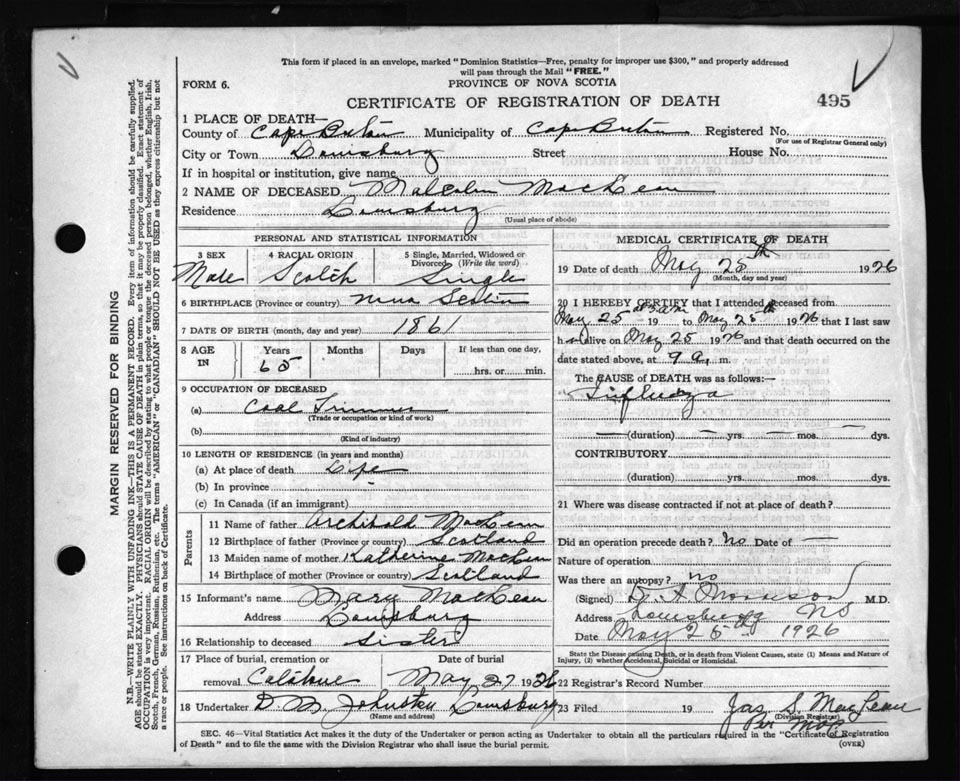 This form if placed in an envelope, marked "Dominion Statistics—Free, penalty for improper use $300," and properly addressed
will pass through the Mail "FREE."
FORM 6.
PROVINCE OF NOVA SCOTIA
CERTIFICATE OF REGISTRATION OF DEATH
495
1 PLACE OF DEATH—
County of Cape Breton Municipality of Cape Breton Registered No.
(For use of Registrar General only)
City or Town Louisburg Street House No.
If in hospital or institution, give name
2 NAME OF DECEASED Malcolm MacLean
Residence Louisburg
(Usual place of abode)
PERSONAL AND STATISTICAL INFORMATION
3 SEX 4 RACIAL ORIGIN 5 Single, Married, Widowed or
Divorced (Write the word)
Male Scotch Single
6 BIRTHPLACE (Province or country) Nova Scotia
7 DATE OF BIRTH (month, day and year) 1861
8 AGE IN Years Months Days If less than one day,
65 hrs. or min.
9 OCCUPATION OF DECEASED
(a) Coal Trimmer
(Trade or occupation or kind of work)
(b)
(Kind of industry)
10 LENGTH OF RESIDENCE (in years and months)
(a) At place of death Life
(b) In province
(c) In Canada (if an immigrant)
Parents
11 Name of father Archibald MacLean
12 Birthplace of father (Province or country) Scotland
13 Maiden name of mother Katherine MacLean
14 Birthplace of mother (Province or country) Scotland
15 Informant's name Mary MacLean
Address Louisburg
16 Relationship to deceased Sister
17 Place of burial, cremation or Date of burial
removal May 27 1926
18 Undertaker D. M. Johnston Louisburg
(Name and address)
MEDICAL CERTIFICATE OF DEATH
19 Date of death May 25th 1926
(Month, day and year)
20 I HEREBY CERTIFY that I attended deceased from
May 25 19 to May 25th 1926 that I last saw
h alive on May 25 1926 and that death occurred on the
date stated above, at 9 a. m.
The CAUSE OF DEATH was as follows:—
Influenza
(duration) — yrs. — mos. — dys.
CONTRIBUTORY
(duration) yrs. mos. dys.
21 Where was disease contracted if not at place of death?
Did an operation precede death? No Date of —
Nature of operation
Was there an autopsy? no
(Signed) Morrison M.D.
Address Louisburg NS
Date May 25 1926
State the Disease causing Death, or in death from Violent Causes, state (1) Means and Nature of
Injury, (2) whether Accidental, Suicidal or Homicidal.
22 Registrar's Record Number
23 Filed 19 Jas. S. MacLean
(Division Registrar)
Per
SEC. 46—Vital Statistics Act makes it the duty of the Undertaker or person acting as Undertaker to obtain all the particulars required in the "Certificate of Registration
of Death" and to file the same with the Division Registrar who shall issue the burial permit.
(OVER)
MARGIN RESERVED FOR BINDING
N.B.—WRITE PLAINLY WITH UNFADING INK—THIS IS A PERMANENT RECORD. Every item of information should be carefully supplied.
AGE should be stated EXACTLY. PHYSICIANS should STATE CAUSE OF DEATH in plain terms, so that it may be properly classified. Exact statement of
OCCUPATION is very important. RACIAL ORIGIN will be described by stating to what people or tongue the deceased person belonged, whether English, Irish,
Scotch, French, German, Russian, Ruthenian, etc. The terms "AMERICAN" or "CANADIAN" SHOULD NOT BE USED as they express citizenship but not
a race or people. See instructions on back of Certificate.